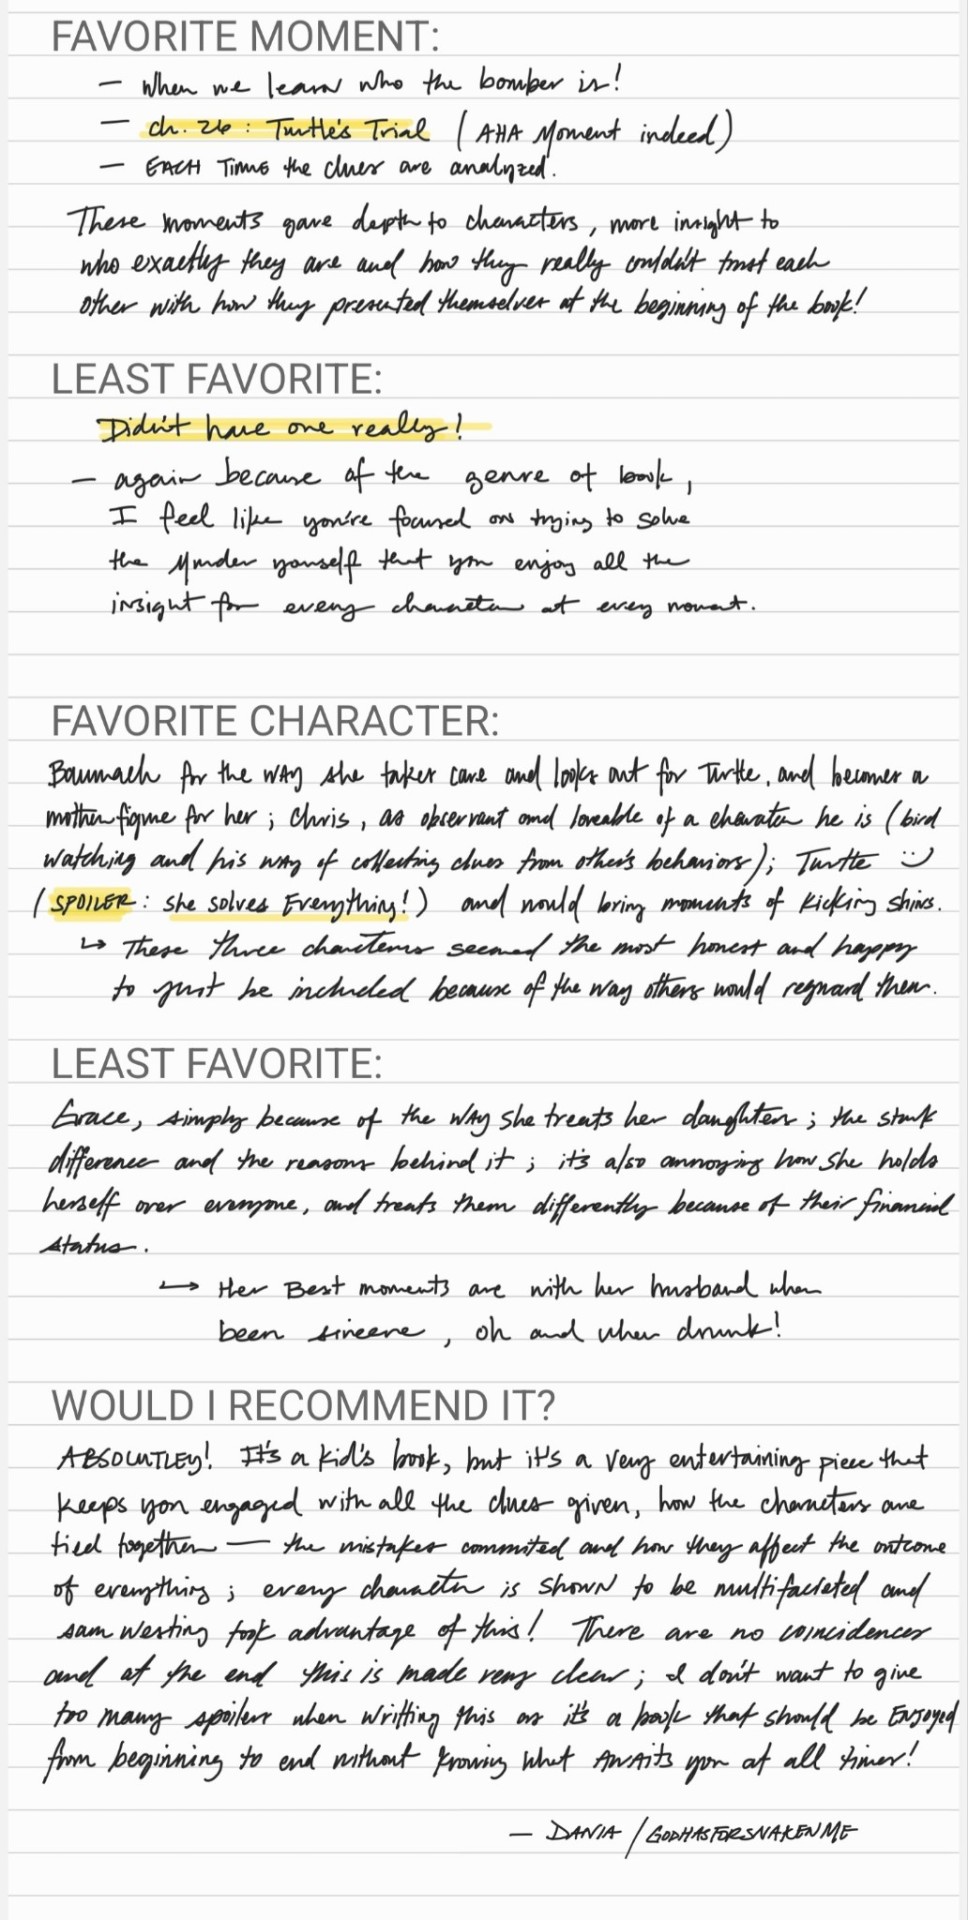 FAVORITE MOMENT:
– When we learn who the bomber is!
– ch. 26 : Turtle's Trial ( AHA Moment indeed )
– EACH Time the clues are analyzed.
These moments gave depth to characters, more insight to
who exactly they are and how they really couldn't trust each
other with how they presented themselves at the beginning of the book!
LEAST FAVORITE:
Didn't have one really!
– again because of the genre of book,
I feel like you're focused on trying to solve
the Murder yourself that you enjoy all the
insight for every character at every moment.
FAVORITE CHARACTER:
Baumach for the WAY she takes care and looks out for Turtle, and becomes a
mother figure for her ; Chris, as observant and loveable of a character he is (bird
watching and his way of collecting clues from other's behaviors); Turtle :)
( SPOILER : she solves Everything! ) and would bring moments of kicking shins.
↳ These three characters seemed the most honest and happy
to just be included because of the way others would reguard them.
LEAST FAVORITE:
Grace, simply because of the WAY she treats her daughters ; the stark
difference and the reasons behind it ; it's also annoying how she holds
herself over everyone, and treats them differently because of their financial
status.
↳ Her Best moments are with her husband when
been sincere, oh and when drunk!
WOULD I RECOMMEND IT?
ABSOLUTLEY! It's a kid's book, but it's a very entertaining piece that
keeps you engaged with all the clues given, how the characters are
tied together — the mistakes commited and how they affect the outcome
of everything ; every character is SHOWN to be multifacieted and
sam westing took advantage of this! There are no coincidences
and at the end this is made very clear ; I don't want to give
too many spoilers when writting this as it's a book that should be ENJOYED
from beginning to end without knowing what AWAITS you at all times!
– DANIA / GODHASFORSNAKENME